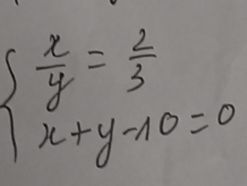 x/y = 2/3
x+y-10=0